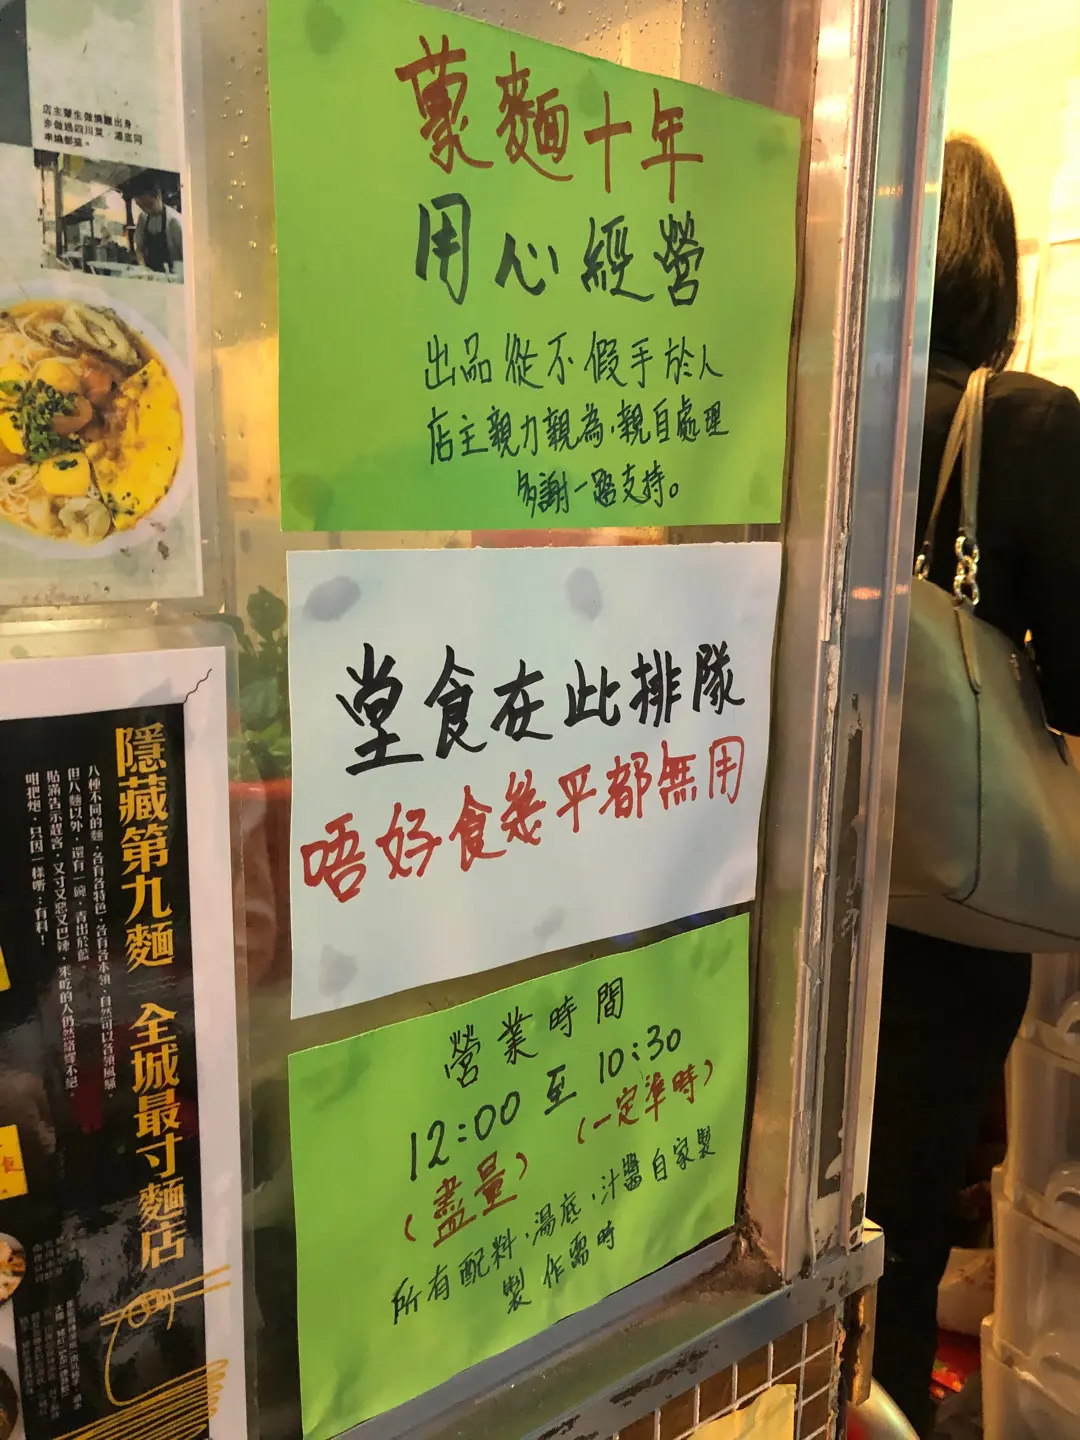 店主華生做燒臘出身，
亦做過四川菜，湯底同
車燒都掂。
蒙麵十年
用心經營
出品從不假手於人
店主親力親為，親自處理
多謝一路支持。
堂食在此排隊
唔好食幾平都無用
營業時間
12:00 至 10:30
（盡量）（一定準時）
所有配料，湯底，汁醬自家製
製作需時
隱藏第九麵 全城最寸麵店
八種不同的麵，各有各特色，各有各本領，自然可以各領風騷。
但八麵以外，還有一碗，青出於藍。
貼滿告示趕客，又寸又惡又巴辣，來吃的人仍然絡繹不絕。
咁把炮，只因一樣嘢：有料！